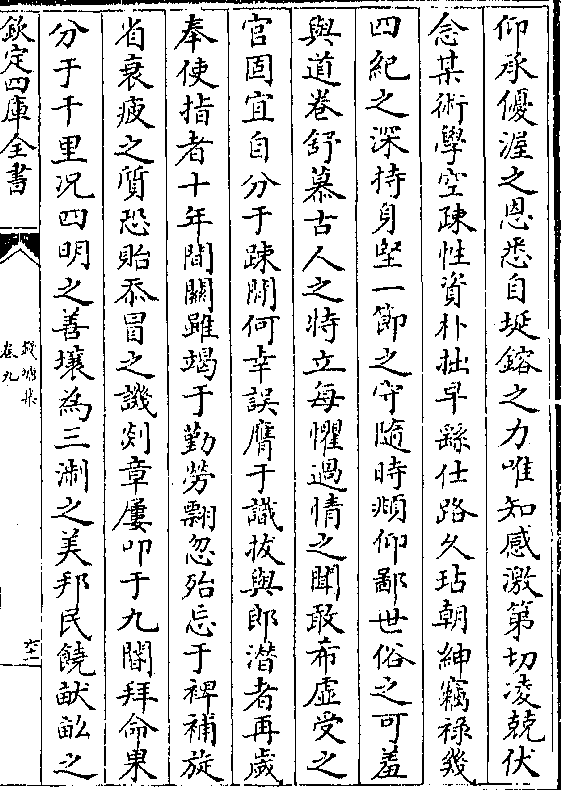 仰承優渥之恩悉自埏鎔之力唯知感激第切凌兢伏
念某術學空疎性資朴拙早繇仕路久玷朝紳竊禄幾
四紀之深持身堅一節之守隨時頫仰鄙世俗之可羞
與道卷舒慕古人之特立每懼過情之聞敢希虛受之
官固宜自分于疎閒何幸誤膺于識拔與郎潜者再歲
奉使指者十年間關雖竭于勤勞飄忽殆忘于裨補旋
省衰疲之質恐貽忝冒之譏剡章屢叩于九閽拜命果
分于千里况四明之善壤為三淛之美邦民饒畎畝之
欽定四庫全書
錢塘集
卷九